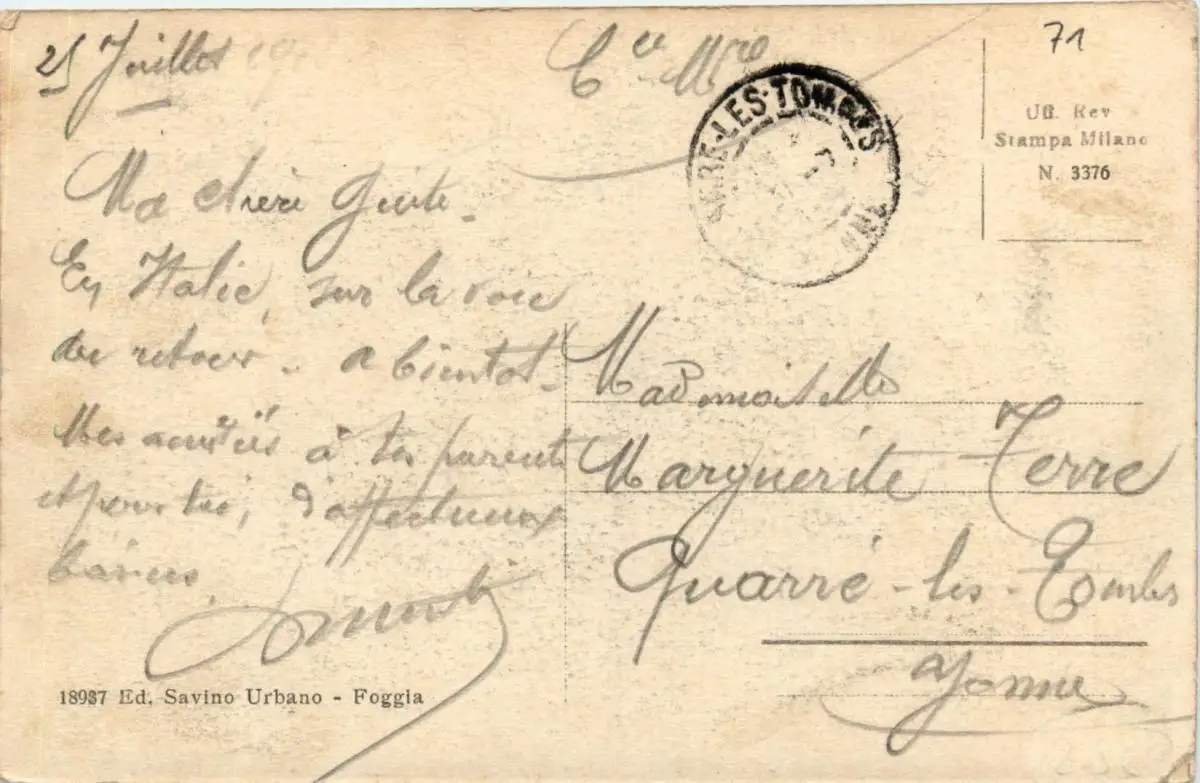 25 Juillet
Cce Mre
71
QUARRE-LES-TOMBES
Uff. Rev
Stampa Milano
N. 3376
Ma chère Guite.
En Italie, sur la voie
du retour. a bientot.
Mes amitiés à tes parents
et pour toi, d'affectueux
baisers.
Mademoiselle
Marguerite Terre
Quarré-les-Tombes
Yonne
18937 Ed. Savino Urbano - Foggia